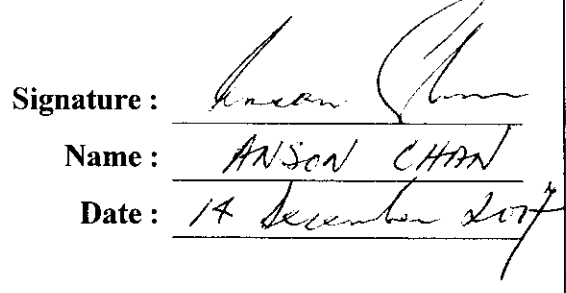 Signature : Anson Chan
Name : ANSON CHAN
Date : 14 December 2017